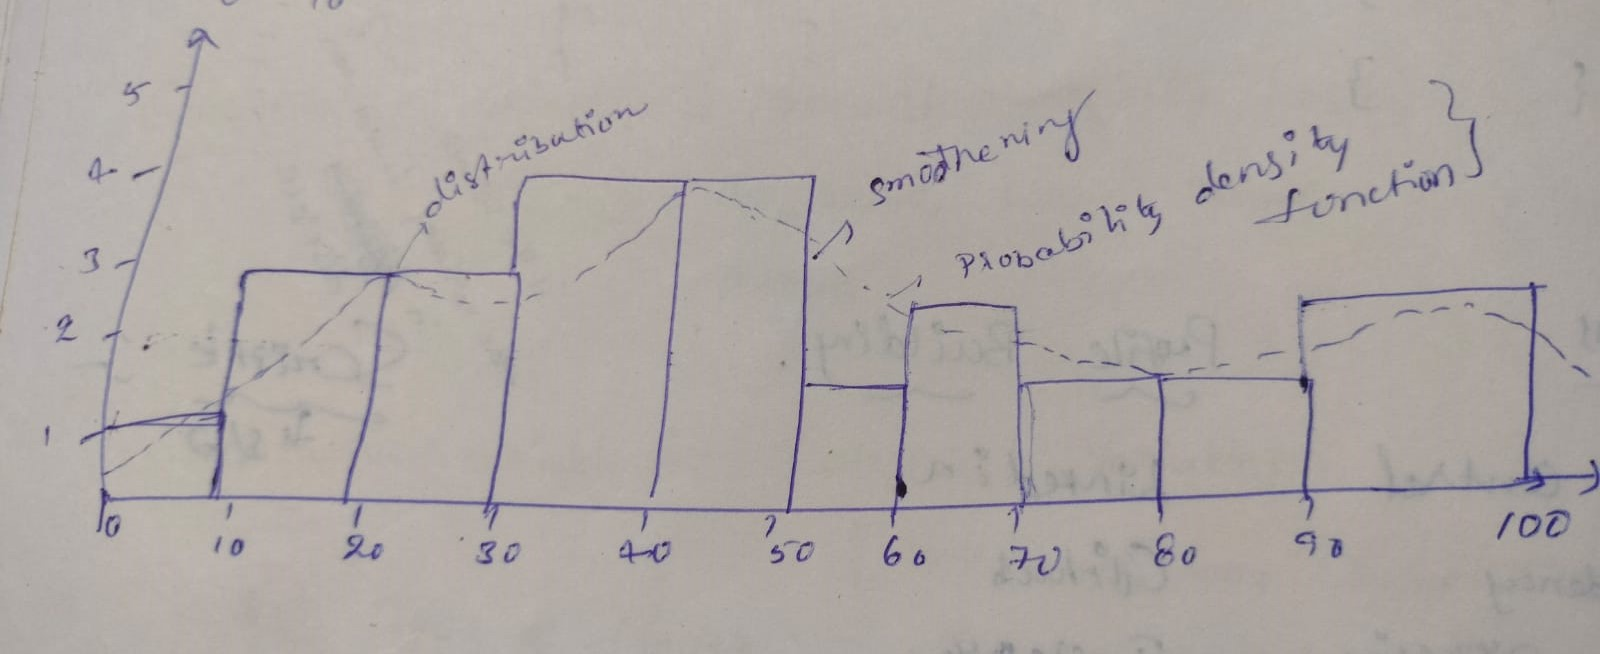 5
4
3
2
1
distribution
smoothening
Probability density
function }
0 10 20 30 40 50 60 70 80 90 100